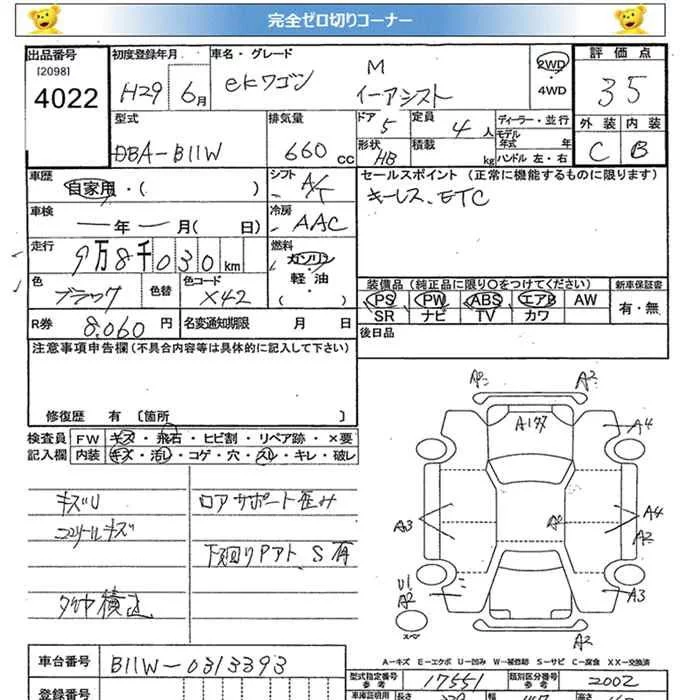 完全ゼロ切りコーナー
出品番号 [2098] 4022
初度登録年月 H29 6月
車名・グレード ekワゴン M イーアシスト
2WD 4WD
評価点 35
外装 内装 C B
型式 DBA-B11W
排気量 660cc
ドア 5
定員 4人
形状 HB
積載 kg
ディーラー・並行
モデル年式 年式
ハンドル 左・右
車歴 自家用・( )
シフト A/T
セールスポイント (正常に機能するものに限ります)
キーレス、ETC
車検 年 月( 日)
冷房 AAC
走行 9万8千030km
燃料 ガソリン 軽油 ( )
色 ブラック 色替 色コード X42
装備品 (純正品に限り〇をつけてください) 新車保証書
PS PW ABS エアB AW 有・無
SR ナビ TV カワ
R券 8,060円 名変通知期限 月 日
後日品
注意事項申告欄(不具合内容等は具体的に記入して下さい)
修復歴 有 [箇所 ]
検査員 FW キズ・飛石・ヒビ割・リペア跡・×要
記入欄 内装 キズ・汚レ・コゲ・穴・スレ・キレ・破レ
キズU
コアサポート歪み
コンソールキズ
下廻りPアト S有
タイヤ積込
A2
A2
A4
A3
A4
A2
U1
A2
A3
スペ
A2
A-キズ E-エクボ U-凹み W-補修跡 S-サビ C-腐食 XX-交換済
車台番号 B11W-0313393
型式指定番号 参考 17551
類別区分番号 参考 2002
登録番号
車庫証明用
長さ
幅
高さ